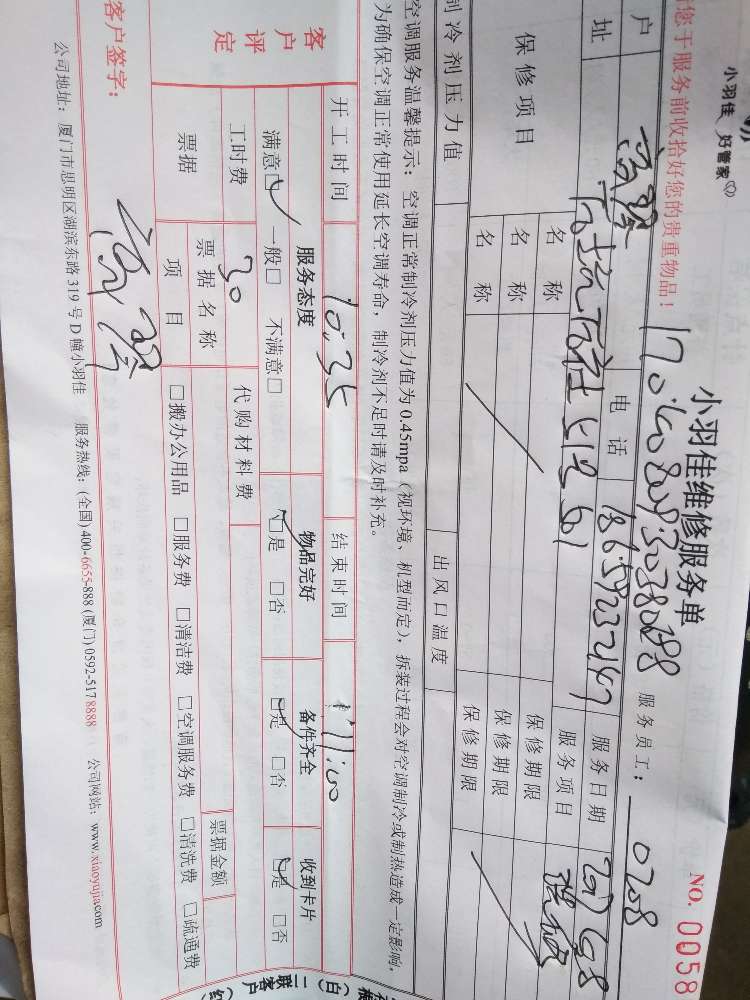 小羽佳 好管家
您于服务前收拾好您的贵重物品！
小羽佳维修服务单
NO. 0058
服务员工： 0208
户 电话 18659232187 服务日期
址 服务项目
保修项目 名称 保修期限
名称 保修期限
名称 保修期限
制冷剂压力值 出风口温度
空调服务温馨提示：空调正常制冷剂压力值为0.45mpa（视环境、机型而定），拆装过程会对空调制冷或制热造成一定影响，
为确保空调正常使用延长空调寿命，制冷剂不足时请及时补充。
开工时间 10:35 结束时间 11:00
客户评定 服务态度 物品完好 备件齐全 收到卡片
满意□ 一般□ 不满意□ □是 □否 □是 □否 □是 □否
工时费 30 代购材料费
票据 票据名称 票据金额
项目 □搬办公用品 □服务费 □清洁费 □空调服务费 □清洗费 □疏通费
客户签字：
公司地址：厦门市思明区湖滨东路319号D幢小羽佳 服务热线：(全国)400-6655-888 (厦门)0592-5178888 公司网站：www.xiaoyujia.com
(白) 二联客户 (红)